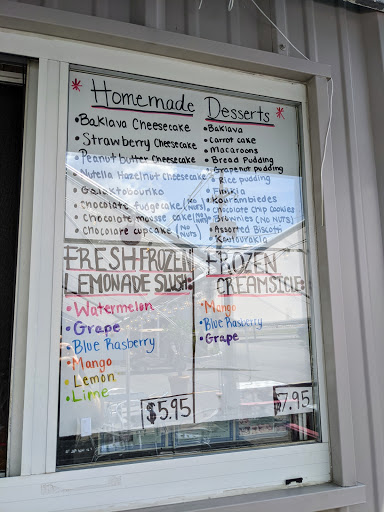 * Homemade Desserts *
• Baklava Cheesecake
• Strawberry Cheesecake
• Peanut butter Cheesecake
Nutella Hazelnut Cheesecake
• Galaktobouriko
• chocolate fudge cake (NO NUTS)
• chocolate mousse cake (NO NUTS)
• chocolate cupcake (NO NUTS)
• Baklava
• carrot cake
• Macaroons
• Bread Pudding
• Grapenut pudding
• Rice pudding
• Finikia
• Kourambiedes
• chocolate chip cookies
• Brownies (NO NUTS)
• Assorted Biscotti
• Koulourakia
FRESH FROZEN
LEMONADE SLUSH
• Watermelon
• Grape
• Blue Rasberry
• Mango
• Lemon
• Lime
$5.95
FROZEN
CREAMSICLE
• Mango
• Blue Rasberry
• Grape
$7.95